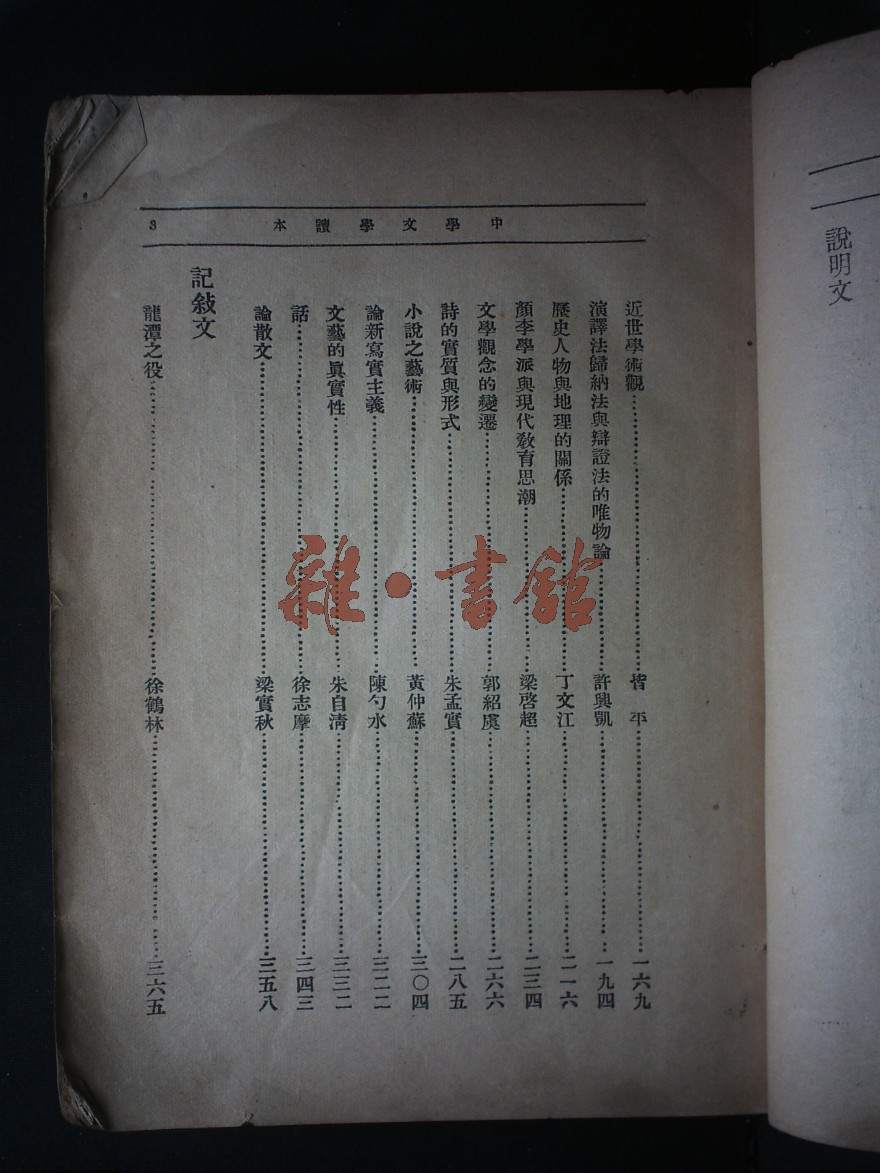 中學文學讀本
3
近世學術觀……皆平……一六九
演譯法歸納法與辯證法的唯物論……許興凱……一九四
歷史人物與地理的關係……丁文江……二一六
顏李學派與現代敎育思潮……梁啓超……二三四
文學觀念的變遷……郭紹虞……二六六
詩的實質與形式……朱孟實……二八五
小說之藝術……黃仲蘇……三〇四
論新寫實主義……陳勺水……三二二
文藝的眞實性……朱自淸……三三二
話……徐志摩……三四三
論散文……梁實秋……三五八
記敍文
龍潭之役……徐鶴林……三六五
說明文
雜·書館